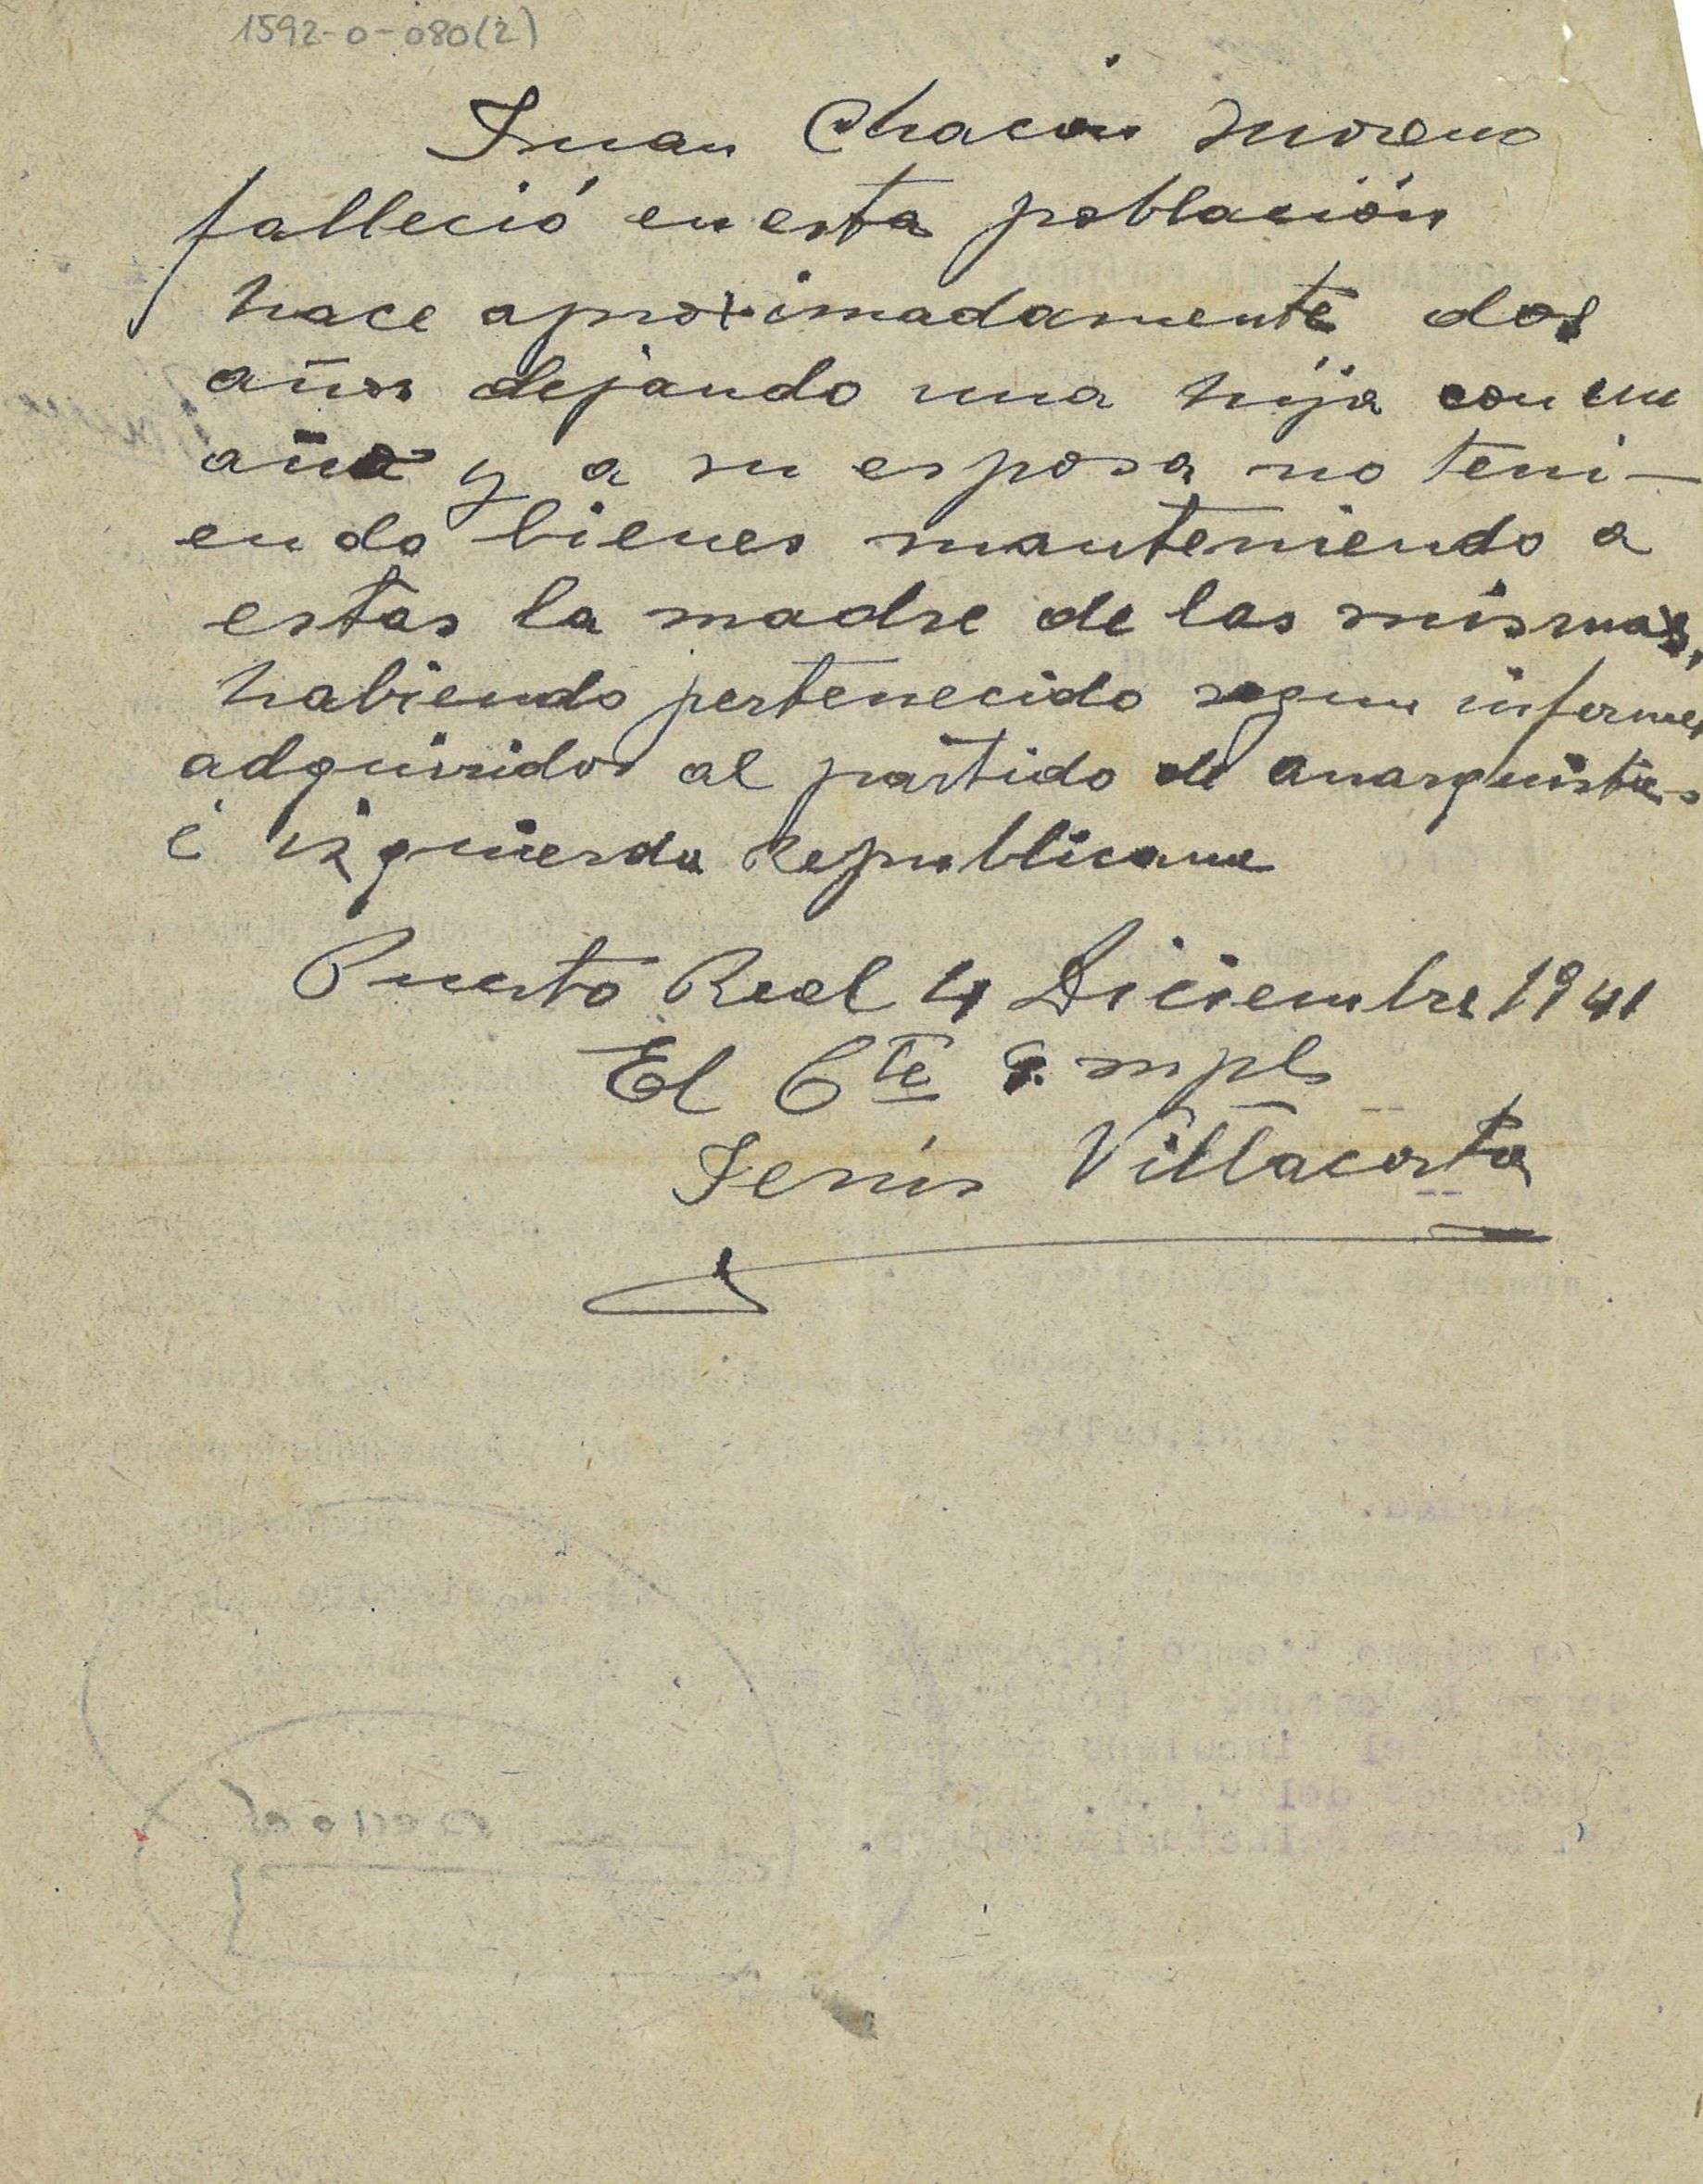 1592-0-080(2)
Juan Chacón Moreno
falleció en esta población
hace aproximadamente dos
años dejando una hija con un
año y a su esposa no teni-
endo bienes manteniendo a
estas la madre de las mismas,
habiendo pertenecido segun informes
adquirridos al partido de anarquistas
é izquierda Republicana
Puerto Real 4 Diciembre 1941
El Cte mpl
Jesús Villacorta